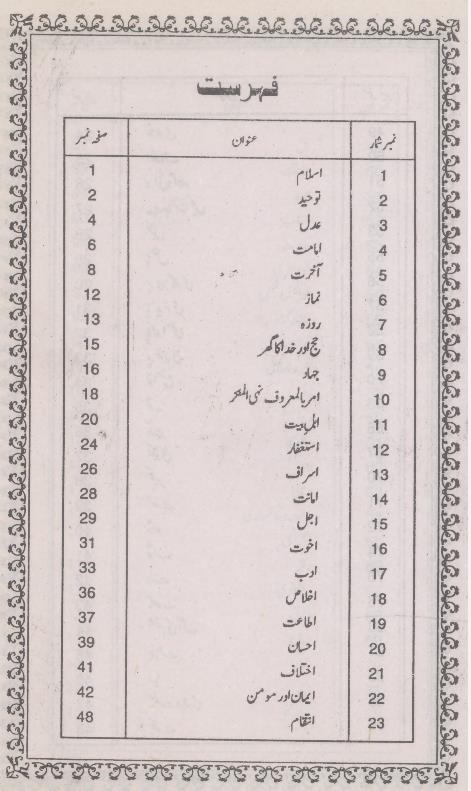 فہرست
نمبر شمار عنوان صفحہ نمبر
1 اسلام 1
2 توحید 2
3 عدل 4
4 امامت 6
5 آخرت 8
6 نماز 12
7 روزہ 13
8 حج اور خدا کا گھر 15
9 جہاد 16
10 امر بالمعروف نہی المنکر 18
11 اہل بیت 20
12 استغفار 24
13 اسراف 26
14 امانت 28
15 اجل 29
16 اخوت 31
17 ادب 33
18 اخلاص 36
19 اطاعت 37
20 احسان 39
21 اختلاف 41
22 ایمان اور مومن 42
23 انتقام 48